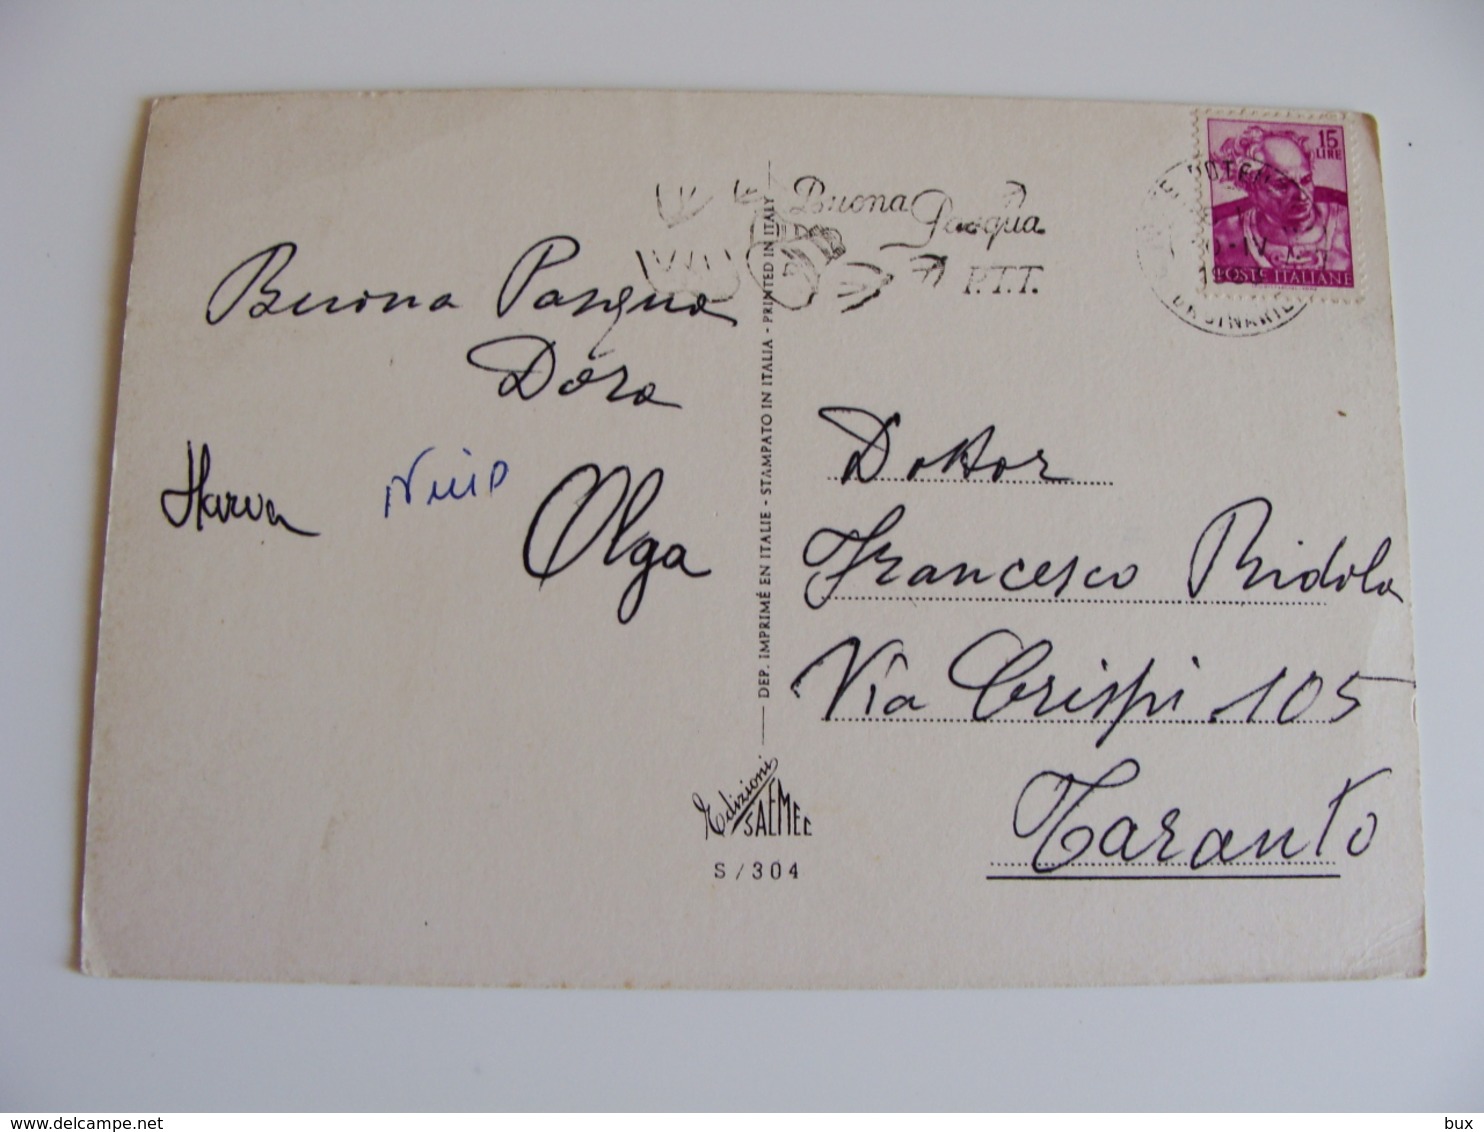 Buona Pasqua
P.T.T.
15
LIRE
POSTE ITALIANE
Buona Pasqua
Dora
Nino
Olga
DEP. IMPRIMÉ EN ITALIE - STAMPATO IN ITALIA - PRINTED IN ITALY
Edizioni
SAEMEC
S/304
Dottor
Francesco Ridola
Via Crispi 105
Taranto
delcampe.net
bux